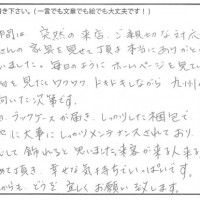 き下さい。(一言でも文章でも絵でも大丈夫です!)
間は 突然の来店、ご親切な対応
さんの家具を見せて頂き本当にありがとう
いました。毎日のようにホームページを見てい
日を見たとワクワク、ドキドキしながら 九州
向いた次第です。
日、ラックケースが届き、しっかりした梱包で、
に大事にしっかりメンテナンスされており、
して飾れると思いました。来客が来る人来る
めて頂き、幸せな気持ちでいっぱいです。
からも、どうぞ宜しくお願い致します。